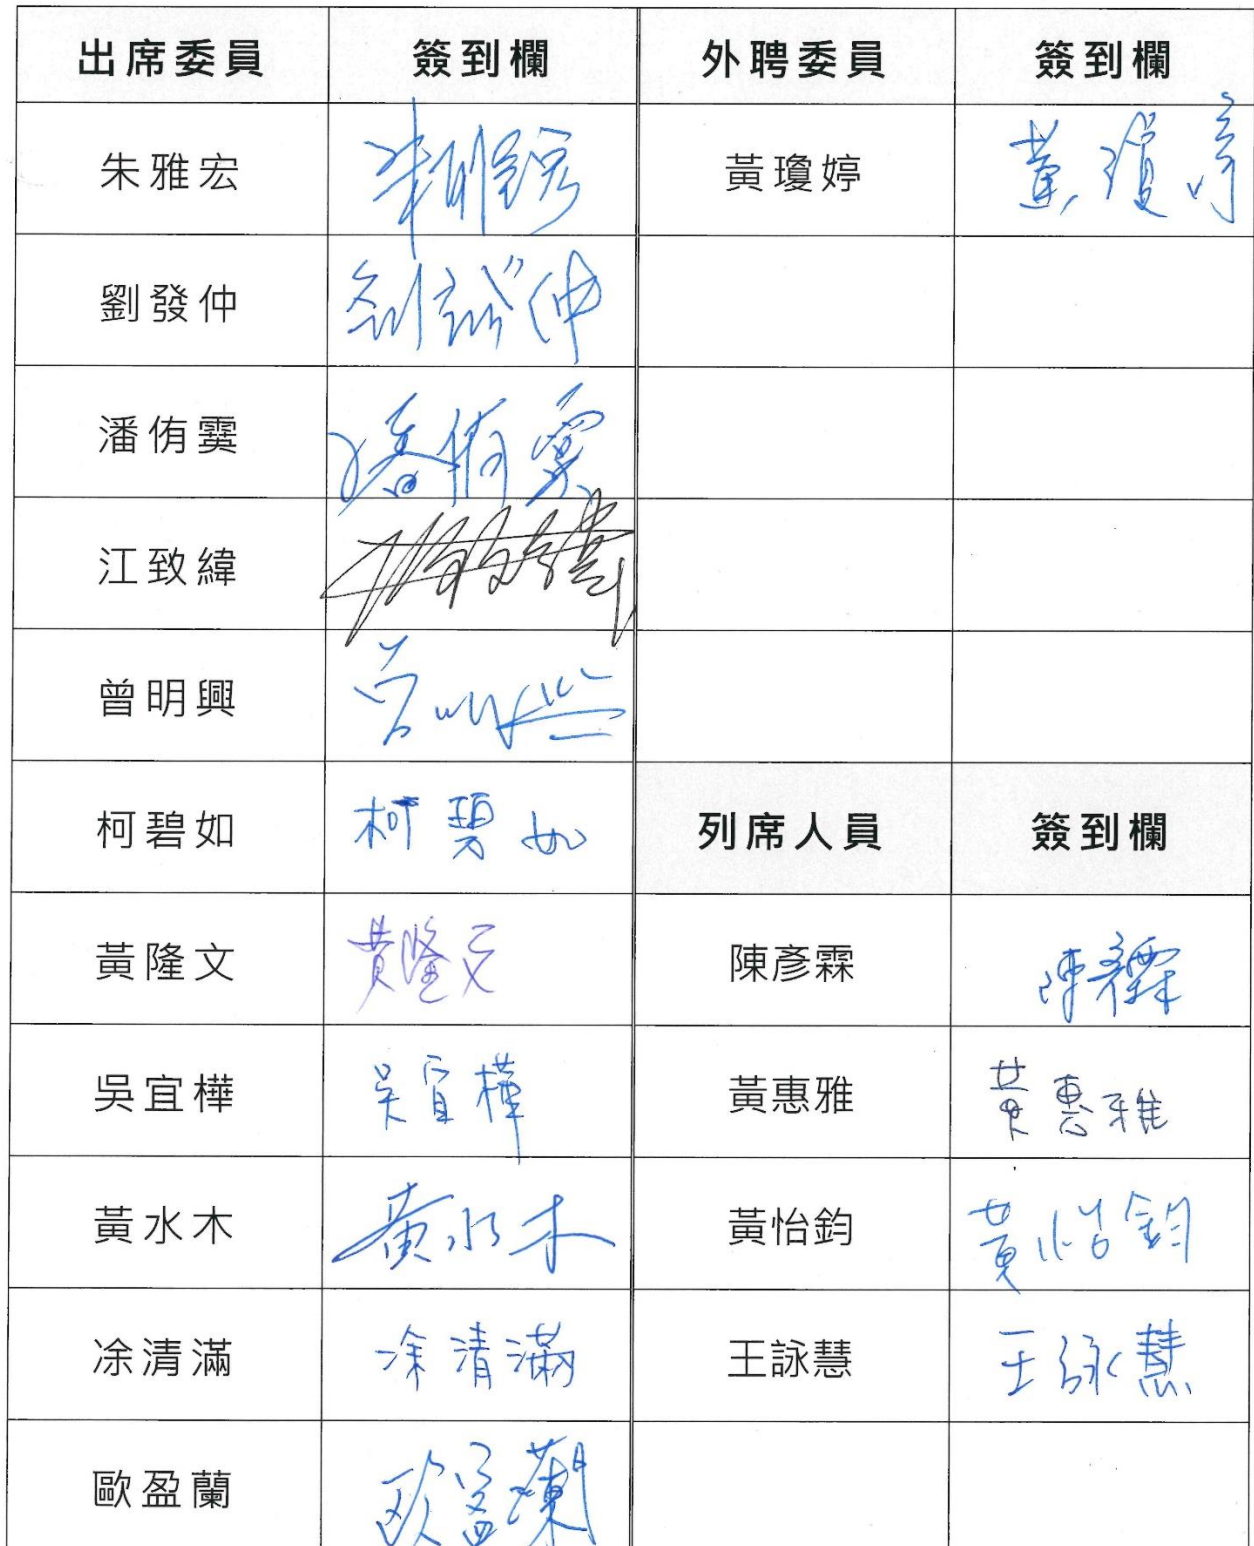 出席委員 簽到欄 外聘委員 簽到欄
朱雅宏 朱雅宏 黃瓊婷 黃瓊婷
劉發仲 劉發仲
潘侑霙 潘侑霙
江致緯 江致緯
曾明興 曾明興
柯碧如 柯碧如 列席人員 簽到欄
黃隆文 黃隆文 陳彥霖 陳彥霖
吳宜樺 吳宜樺 黃惠雅 黃惠雅
黃水木 黃水木 黃怡鈞 黃怡鈞
凃清滿 凃清滿 王詠慧 王詠慧
歐盈蘭 歐盈蘭